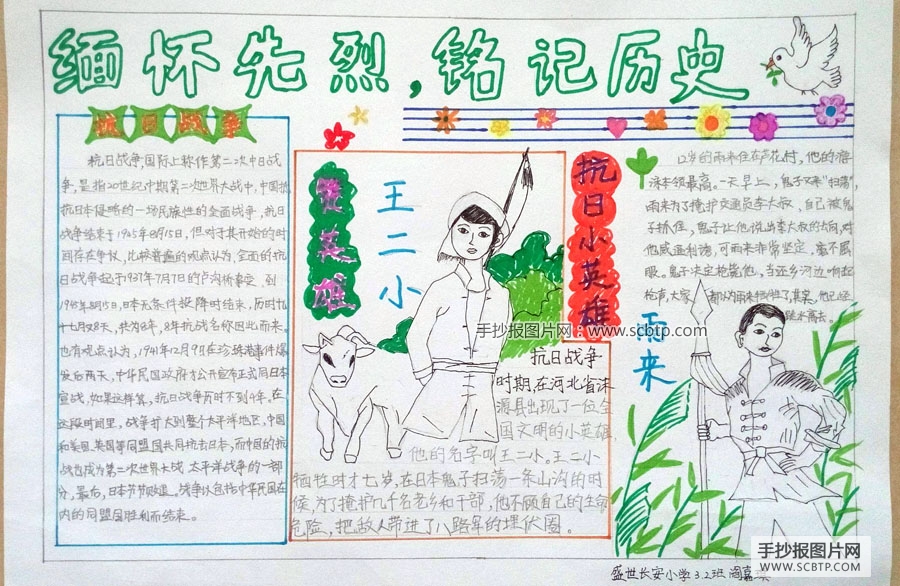 缅怀先烈，铭记历史
抗日战争
抗日战争，国际上称作第二次中日战
争，是指20世纪中期第二次世界大战中，中国抵
抗日本侵略的一场民族性的全面战争，抗日
战争结束于1945年8月15日，但对于其开始的时
间存在争议，比较普遍的观点认为，全面的抗
日战争起于1937年7月7日的卢沟桥事变，到
1945年8月15日，日本无条件投降时结束，历时九
十七月28天，共为8年，8年抗战名称因此而来。
也有观点认为，1941年12月9日在珍珠港事件爆
发后两天，中华民国政府才公开宣布正式同日本
宣战，如果这样算，抗日战争历时不到4年，在
这段时间里，战争扩大到整个太平洋地区，中国
和美国、英国等同盟国共同抗击日本，而中国的抗
战也成为第二次世界大战太平洋战争的一部
分，最后，日本节节败退，战争以包括中华民国在
内的同盟国胜利而结束。
英雄
王二小
抗日战争
时期，在河北省涞
源县出现了一位全
国文明的小英雄，
他的名字叫王二小。王二小
牺牲时才七岁，在日本鬼子扫荡一条山沟的时
候，为了掩护几千名老乡和干部，他不顾自己的生命
危险，把敌人带进了八路军的埋伏圈。
抗日小英雄
12岁的雨来住在芦花村，他的游
泳本领最高。一天早上，鬼子又来“扫荡”，
雨来为了掩护交通员李大叔，自己被鬼
子抓住，鬼子让他说出李大叔的去向，对
他威逼利诱，可雨来非常坚定，毫不屈
服。鬼子决定枪毙他，当还乡河边响起
枪声，大家都认为雨来牺牲了，其实，他已经
跳水离去。
雨来
手抄报图片网：www.scbtp.com
盛世长安小学3.2班 阎嘉
手抄报图片网
WWW.SCBTP.COM